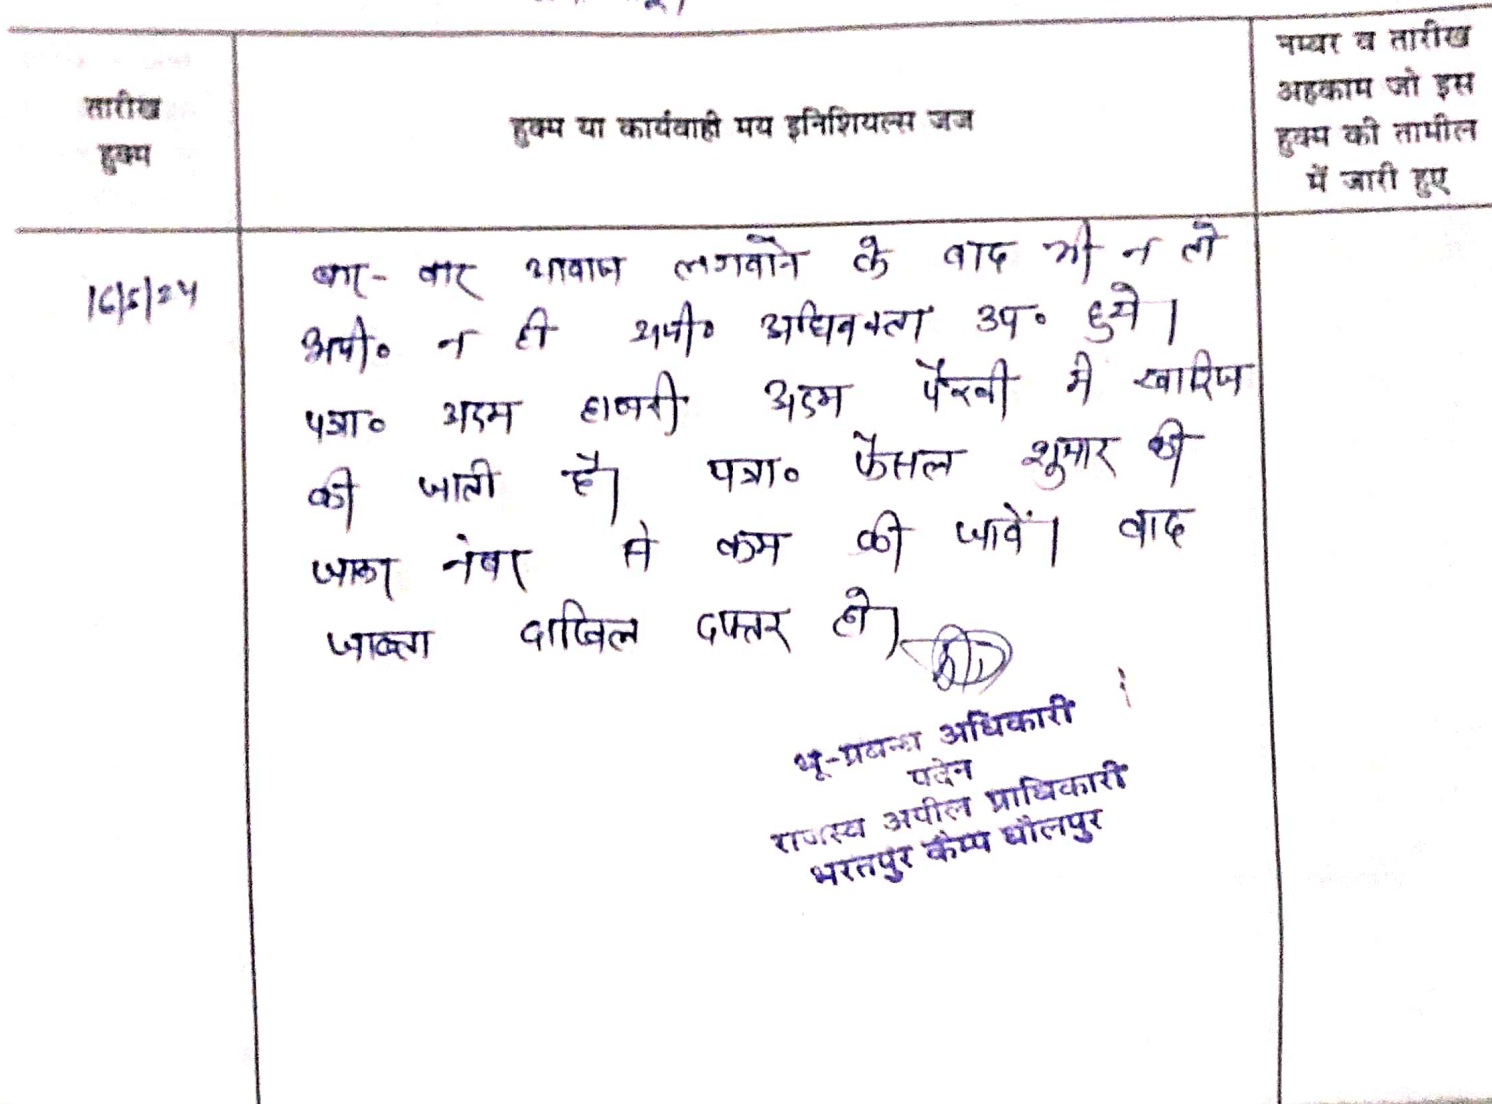 तारीख
हुक्म
हुक्म या कार्यवाही मय इनिशियल्स जज
नम्बर व तारीख
अहकाम जो इस
हुक्म की तामील
में जारी हुए
16/5/24
बार-बार आवाज लगवाने के बाद भी न तो
अपी० न ही अपी० अधिवक्ता उप० हुये।
पत्रा० अदम हाजरी अदम पैरवी में खारिज
की जाती है। पत्रा० फैसल शुमार की
जाकर नंबर से कम की जावें। बाद
जाब्ता दाखिल दफ्तर हो।
भू-प्रबन्ध अधिकारी
पदेन
राजस्व अपील प्राधिकारी
भरतपुर कैम्प धौलपुर